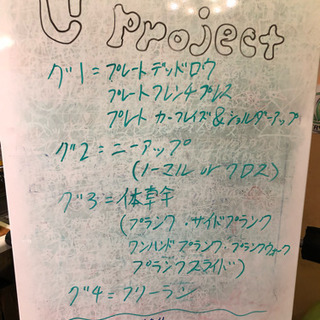 C project
グ1=プレートデッドロウ
プレートフレンチプレス
プレートカーフレイズ&ショルダーアップ
グ2=ニーアップ
(ノーマル or クロス)
グ3=体幹
(プランク・サイドプランク
ワンハンドプランク・プランクウォーク
プランクスライド)
グ4=フリーラン